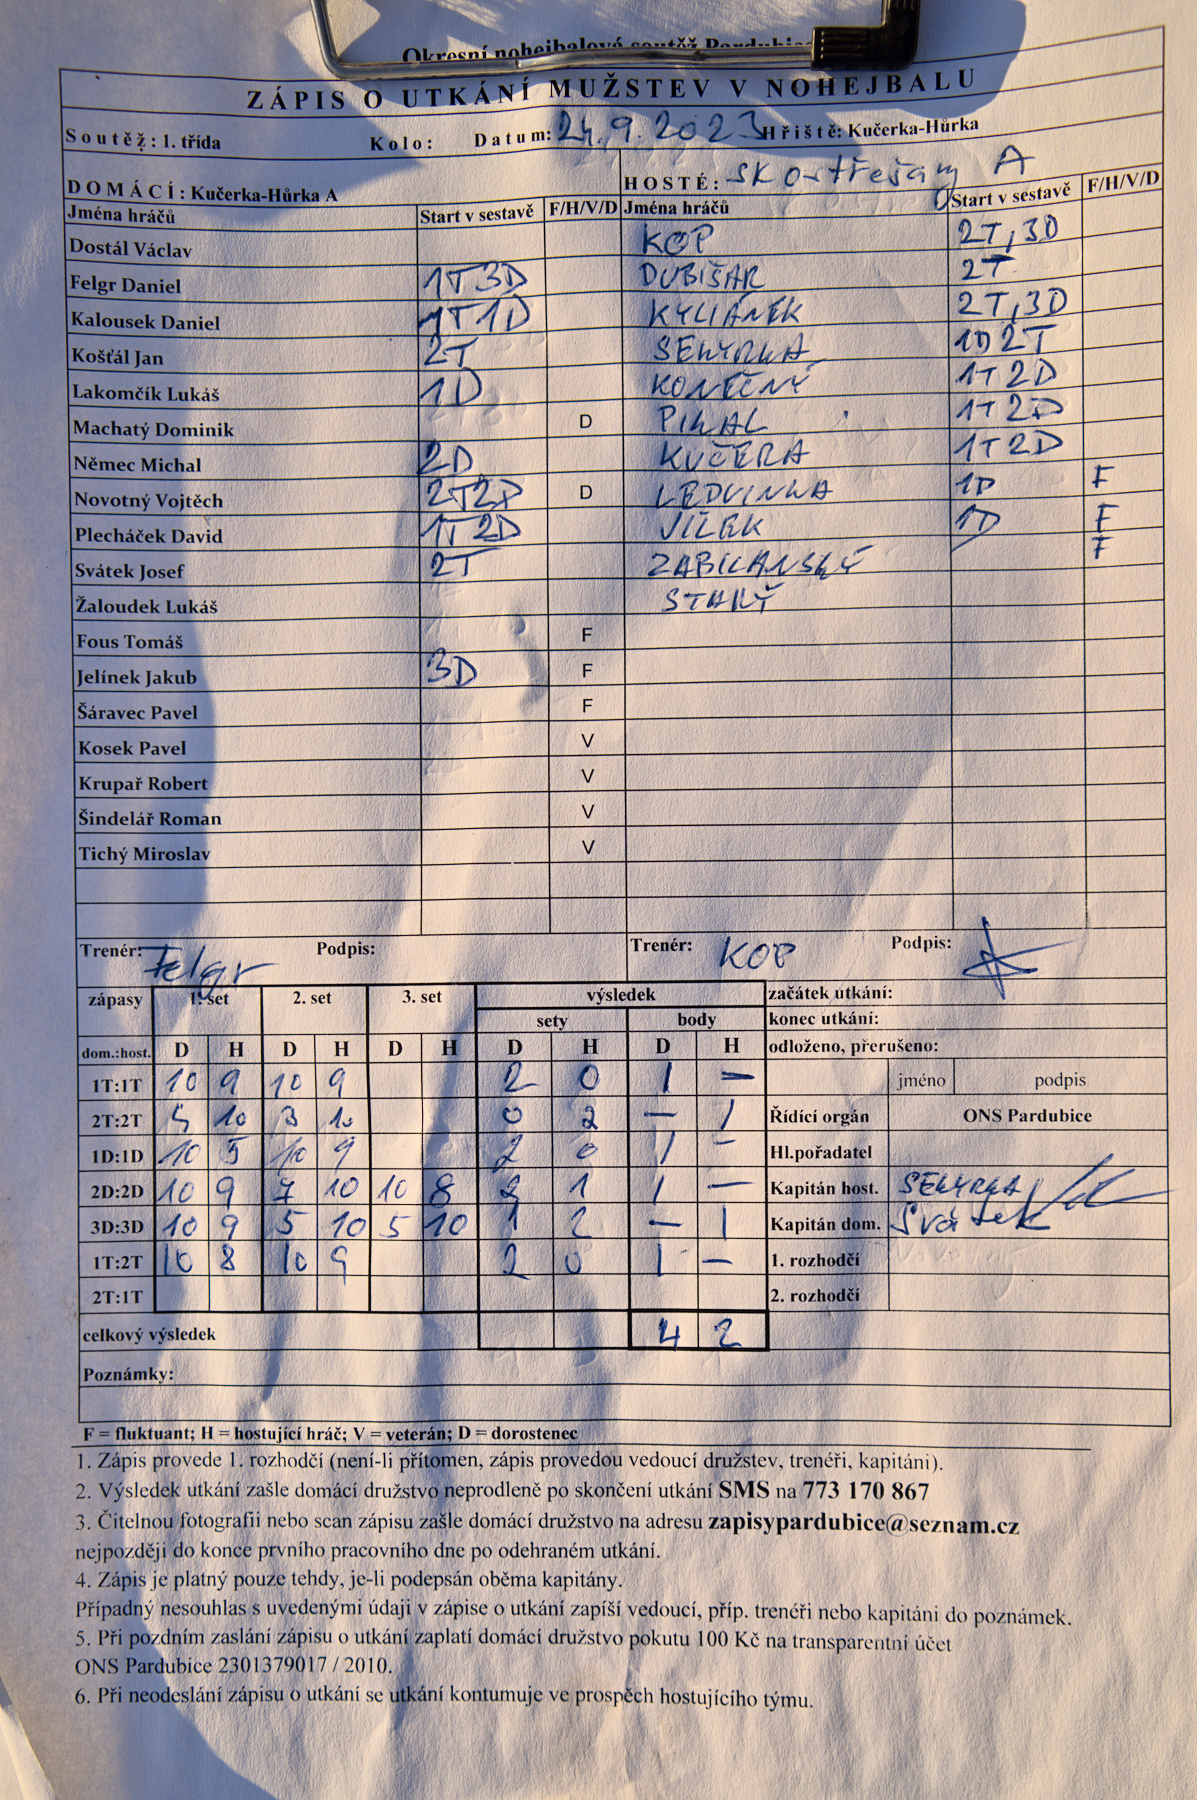 Okresní nohejbalová soutěž
ZÁPIS O UTKÁNÍ MUŽSTEV V NOHEJBALU
Soutěž: 1. třída Kolo: Datum: 24.9.2023 Hřiště: Kučerka-Hůrka
DOMÁCÍ: Kučerka-Hůrka A HOSTÉ: SK Ostřešany A
Jména hráčů Start v sestavě F/H/V/D Jména hráčů Start v sestavě F/H/V/D
Dostál Václav KOP 2T,3D
Felgr Daniel 1T 3D DUBIŠAR 2T
Kalousek Daniel 1T 1D KYLIÁNEK 2T,3D
Košťál Jan 2T SEKYRKA 1D 2T
Lakomčík Lukáš 1D KONEČNÝ 1T 2D
Machatý Dominik D PIKAL 1T 2D
Němec Michal 2D KUČERA 1T 2D
Novotný Vojtěch 2T2D D LEDVINKA 1D F
Plecháček David 1T 2D JÍLEK 1D F
Svátek Josef 2T F
Žaloudek Lukáš STARÝ
Fous Tomáš F
Jelínek Jakub 3D F
Šáravec Pavel F
Kosek Pavel V
Krupař Robert V
Šindelář Roman V
Tichý Miroslav V
Trenér: Felgr Podpis: Trenér: KOP Podpis:
zápasy 1. set 2. set 3. set výsledek začátek utkání:
sety body konec utkání:
dom.:host. D H D H D H D H D H odloženo, přerušeno:
1T:1T 10 9 10 9 2 0 1 – jméno podpis
2T:2T 5 10 3 10 0 2 – 1 Řídící orgán ONS Pardubice
1D:1D 10 5 10 9 2 0 1 – Hl.pořadatel
2D:2D 10 9 7 10 10 8 2 1 1 – Kapitán host. SEKYRKA
3D:3D 10 9 5 10 5 10 1 2 – 1 Kapitán dom. Svátek
1T:2T 10 8 10 9 2 0 1 – 1. rozhodčí
2T:1T 2. rozhodčí
celkový výsledek 4 2
Poznámky:
F = fluktuant; H = hostující hráč; V = veterán; D = dorostenec
1. Zápis provede 1. rozhodčí (není-li přítomen, zápis provedou vedoucí družstev, trenéři, kapitáni).
2. Výsledek utkání zašle domácí družstvo neprodleně po skončení utkání SMS na 773 170 867
3. Čitelnou fotografii nebo scan zápisu zašle domácí družstvo na adresu zapisypardubice@seznam.cz
nejpozději do konce prvního pracovního dne po odehraném utkání.
4. Zápis je platný pouze tehdy, je-li podepsán oběma kapitány.
Případný nesouhlas s uvedenými údaji v zápise o utkání zapíší vedoucí, příp. trenéři nebo kapitáni do poznámek.
5. Při pozdním zaslání zápisu o utkání zaplatí domácí družstvo pokutu 100 Kč na transparentní účet
ONS Pardubice 2301379017 / 2010.
6. Při neodeslání zápisu o utkání se utkání kontumuje ve prospěch hostujícího týmu.